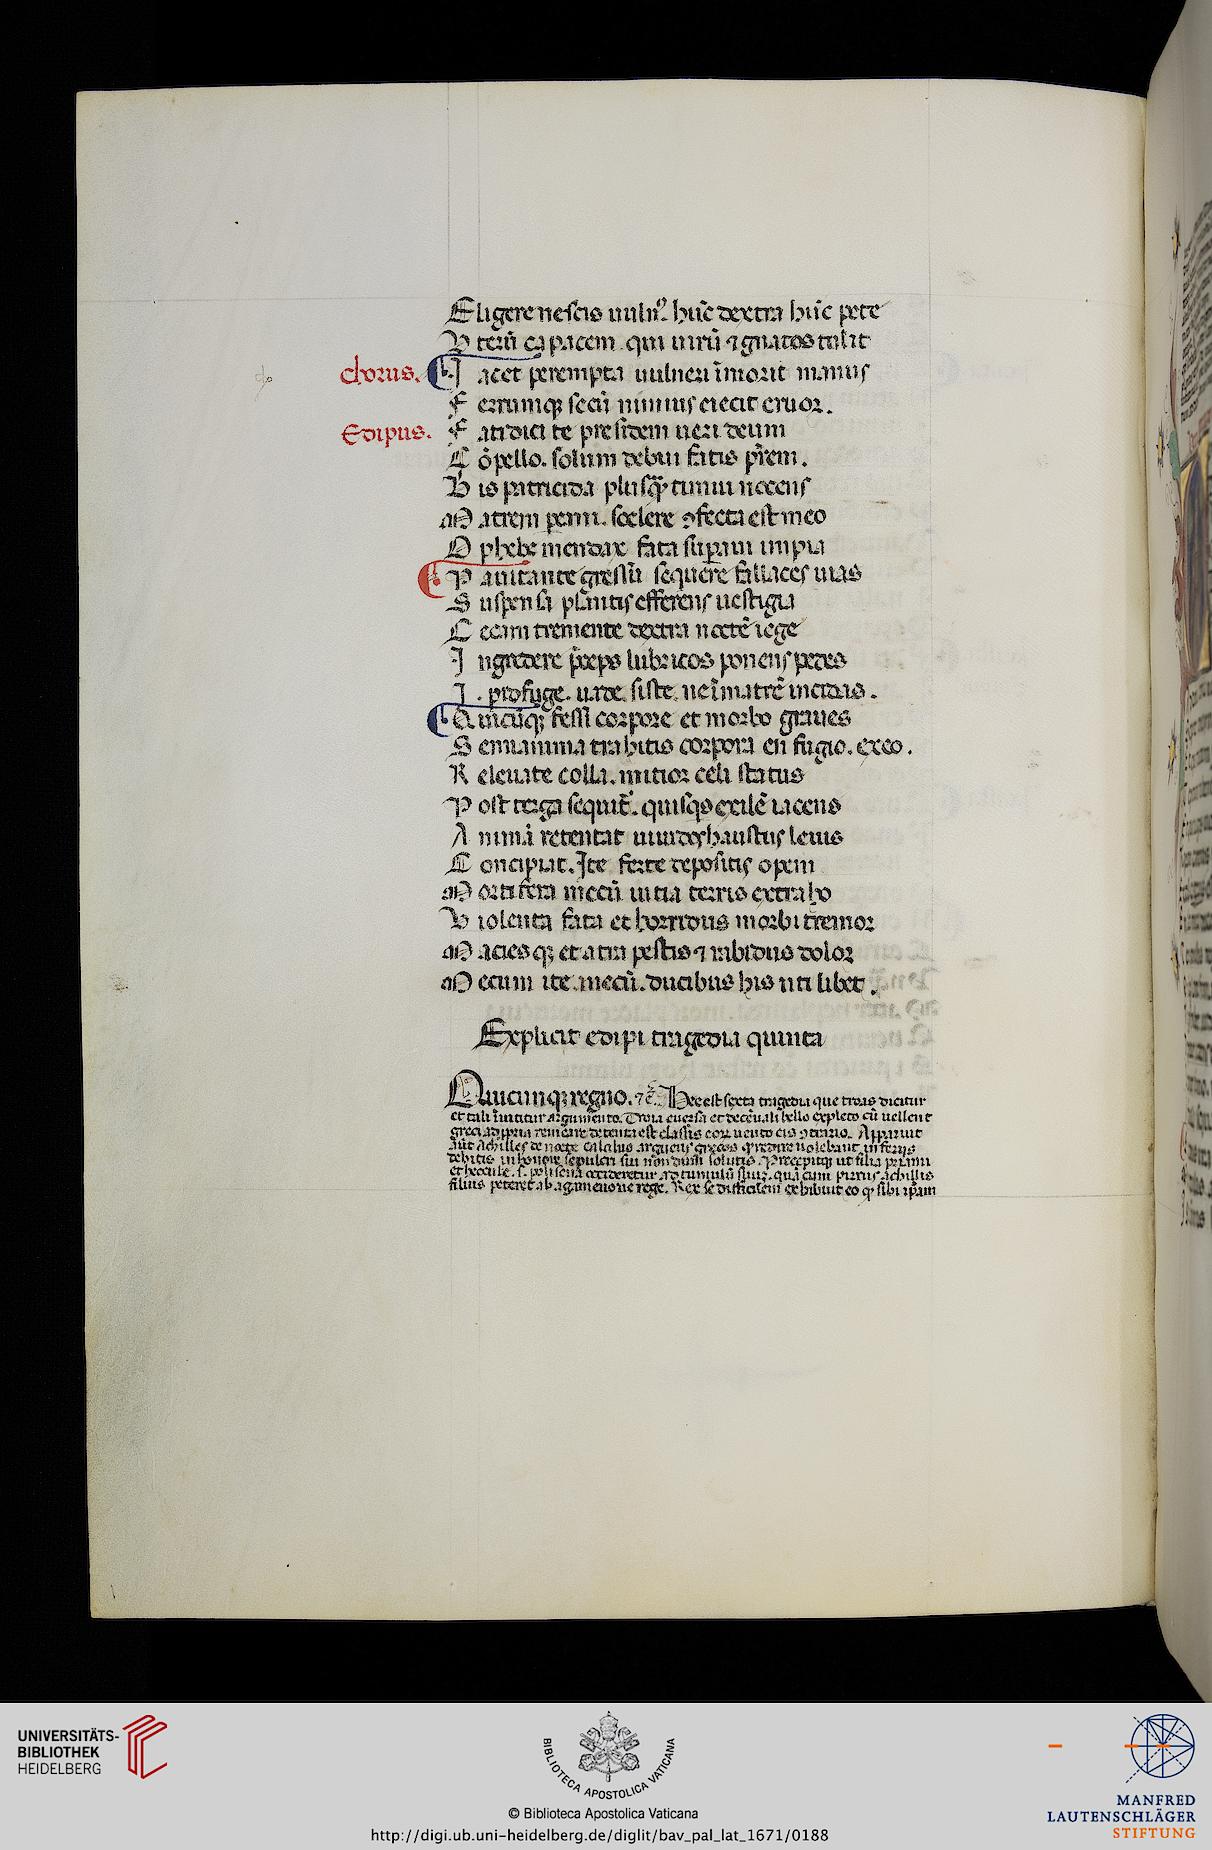 Eligere nescis uuln9. hu͂c dextra hu͂c pete
V teru͂ capacem. qui uiru͂ ⁊ gnatos tulit
chorus. I acet perempta uulneri i͂morit manus
F errumqꝫ secu͂ nimius eiecit cruor.
Edipus. F atidici te presidem ueri deum
C o͂pello. solum debui fatis pr͂em.
B is patricida plusqꝫ timui nocens
M atrem peremi. scelere ꝯfecta est meo
O phebe mendax fata suꝑaui impia
P auitante gressu͂ sequere fallaces uias
S uspensa plantis efferens uestigia
C ecam tremente dextra nocte͂ rege
I ngredere p͂ceps lubricos ponens pedes
I . profuge. uade. siste. ne i͂ matre͂ incidas.
Q uicu͂qꝫ fessi corpore et morbo graues
S emianima trahitis corpora en fugio. exeo.
R eleuate colla. mitior celi status
P ost terga sequit᷑. quisqs exile͂ iacens
A nima͂ retentat uiuidos haustus leuis
C oncipiat. Ite ferte depositis opem
M ortifera mecu͂ uitia terris extraho
V iolenta fata et horridus morbi tremor
M acies qꝫ et atra pestis ⁊ rabidus dolor
M ecum ite. mecu͂. ducibus his uti libet.
Explicit edipi tragedia quinta
Quicunqꝫ regno. ⁊c͂. Hec est sexta tragedia que troas dicitur
et tali i͂nititur argume͂to. Troia euersa et dece͂nali bello expleto cu͂ uellent
greci ad ꝓpria remeare detenta est classis eoꝝ uento eis ꝯtrario. Apparuit
au͂t Achilles de nocte calchas arguens grecos ꝙ redire uolebant inferiis
debitis in honore sepulcri sui no͂ dum solutis. Precepitqꝫ ut filia priami
et heccube .s. polisena occideretur ad tumulu͂ suuꝫ. qua͂ cum pirrus achillis
filius peteret ab agamenone rege. Rex se difficilem exhibuit eo ꝙ sibi ip͂am
UNIVERSITÄTS-
BIBLIOTHEK
HEIDELBERG
BIBLIOTECA APOSTOLICA VATICANA
© Biblioteca Apostolica Vaticana
http://digi.ub.uni-heidelberg.de/diglit/bav_pal_lat_1671/0188
MANFRED
LAUTENSCHLÄGER
STIFTUNG